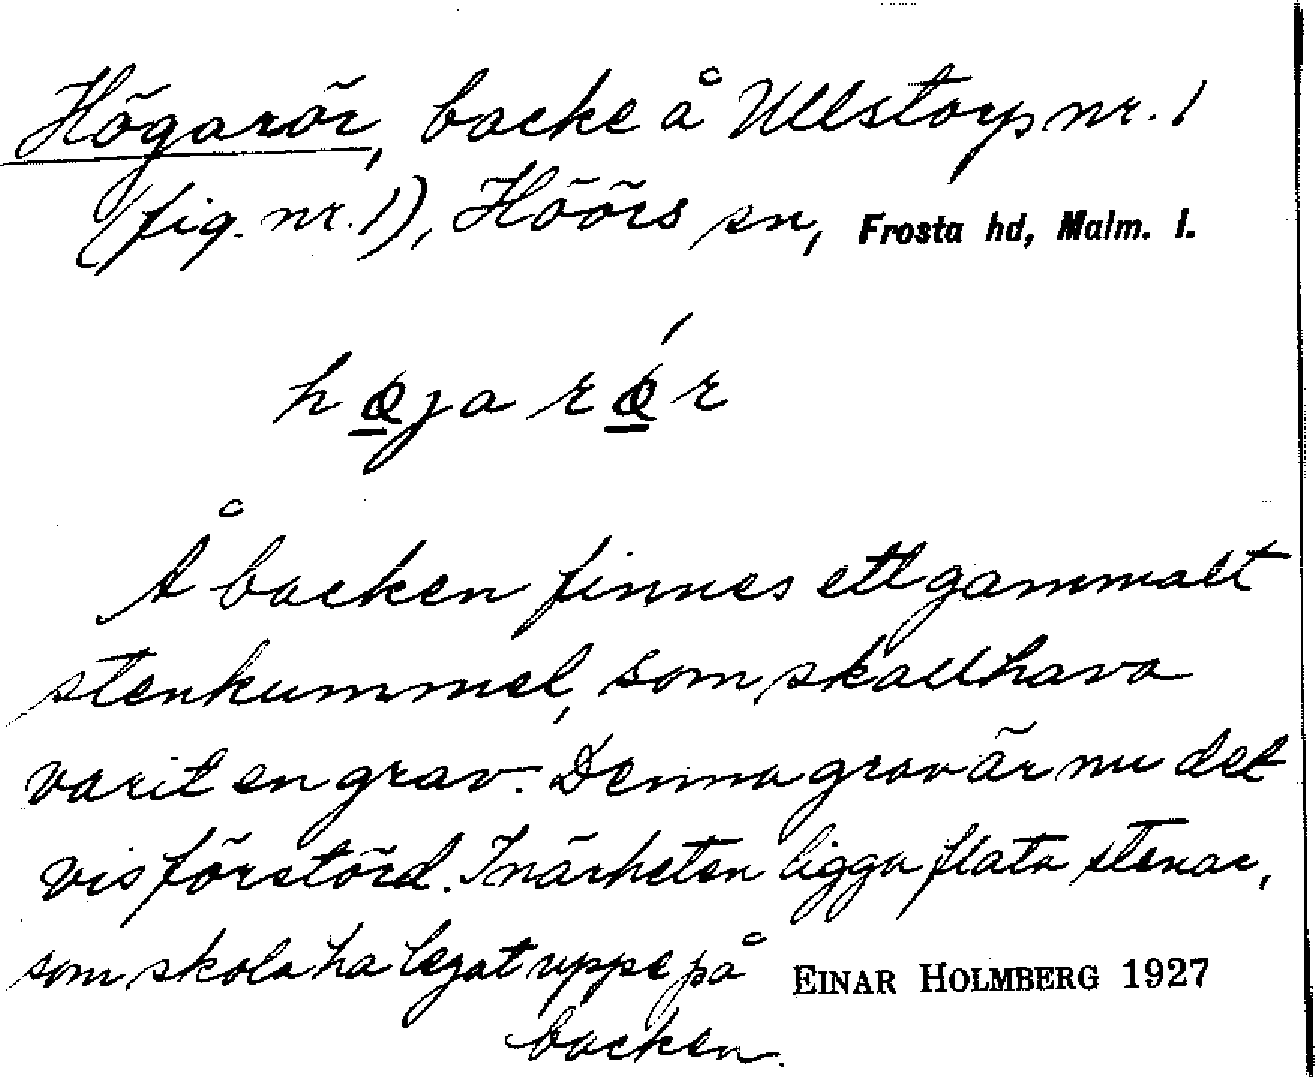 Högarör, backe å Ullstorp nr. 1
(fig. nr. 1), Höörs sn, Frosta hd, Malm. l.
højarǿr
Å backen finnes ett gammalt
stenkummel, som skall hava
varit en grav. Denna grav är nu del
vis förstörd. I närheten ligga flata stenar,
som skola ha legat uppe på EINAR HOLMBERG 1927
backen.